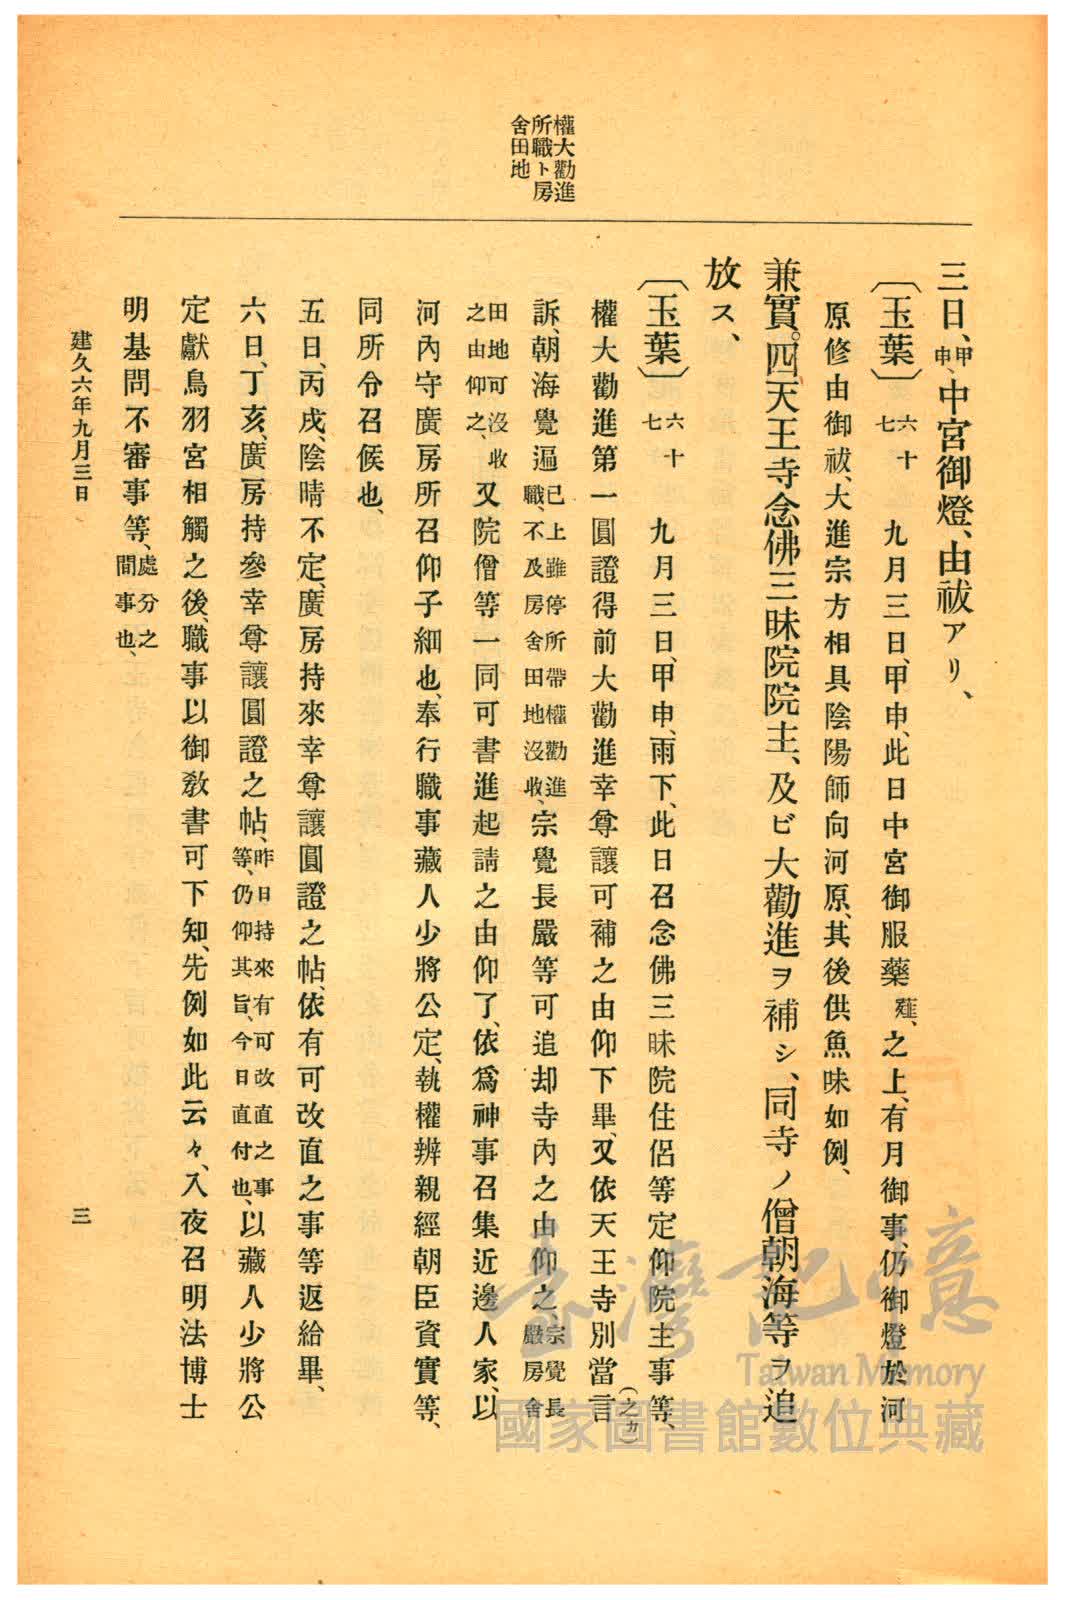 權大勸進
所職ト房
舍田地
三日、甲申、中宮御燈、由祓アリ、
〔玉葉〕六十七 九月三日、甲申、此日中宮御服藥薤、之上、有月御事、仍御燈於河
原修由御祓、大進宗方相具陰陽師向河原、其後供魚味如例、
兼實。四天王寺念佛三昧院院主、及ビ大勸進ヲ補シ、同寺ノ僧朝海等ヲ追
放ス、
〔玉葉〕六十七 九月三日、甲申、雨下、此日召念佛三昧院住侶等定仰院主事等、
權大勸進第一圓證得前大勸進幸尊讓可補之由仰下畢、又依天王寺別當言(之カ)
訴、朝海覺遍已上雖停所帶權勸進職、不及房舍田地沒收、宗覺長嚴等可追却寺內之由仰之宗覺長嚴房舍
田地可沒收之由仰之、又院僧等一同可書進起請之由仰了、依爲神事召集近邊人家、以
河內守廣房所召仰子細也、奉行職事藏人少將公定、執權辨親經朝臣資實等、
同所令召候也、
五日、丙戌、陰晴不定、廣房持來幸尊讓圓證之帖、依有可改直之事等返給畢、
六日、丁亥、廣房持參幸尊讓圓證之帖、昨日持來有可改直之事等、仍仰其旨、今日直付也、以藏人少將公
定獻鳥羽宮相觸之後、職事以御敎書可下知、先例如此云々、入夜召明法博士
明基問不審事等、處分之間事也、
建久六年九月三日
三
臺灣記憶
Taiwan Memory
國家圖書館數位典藏